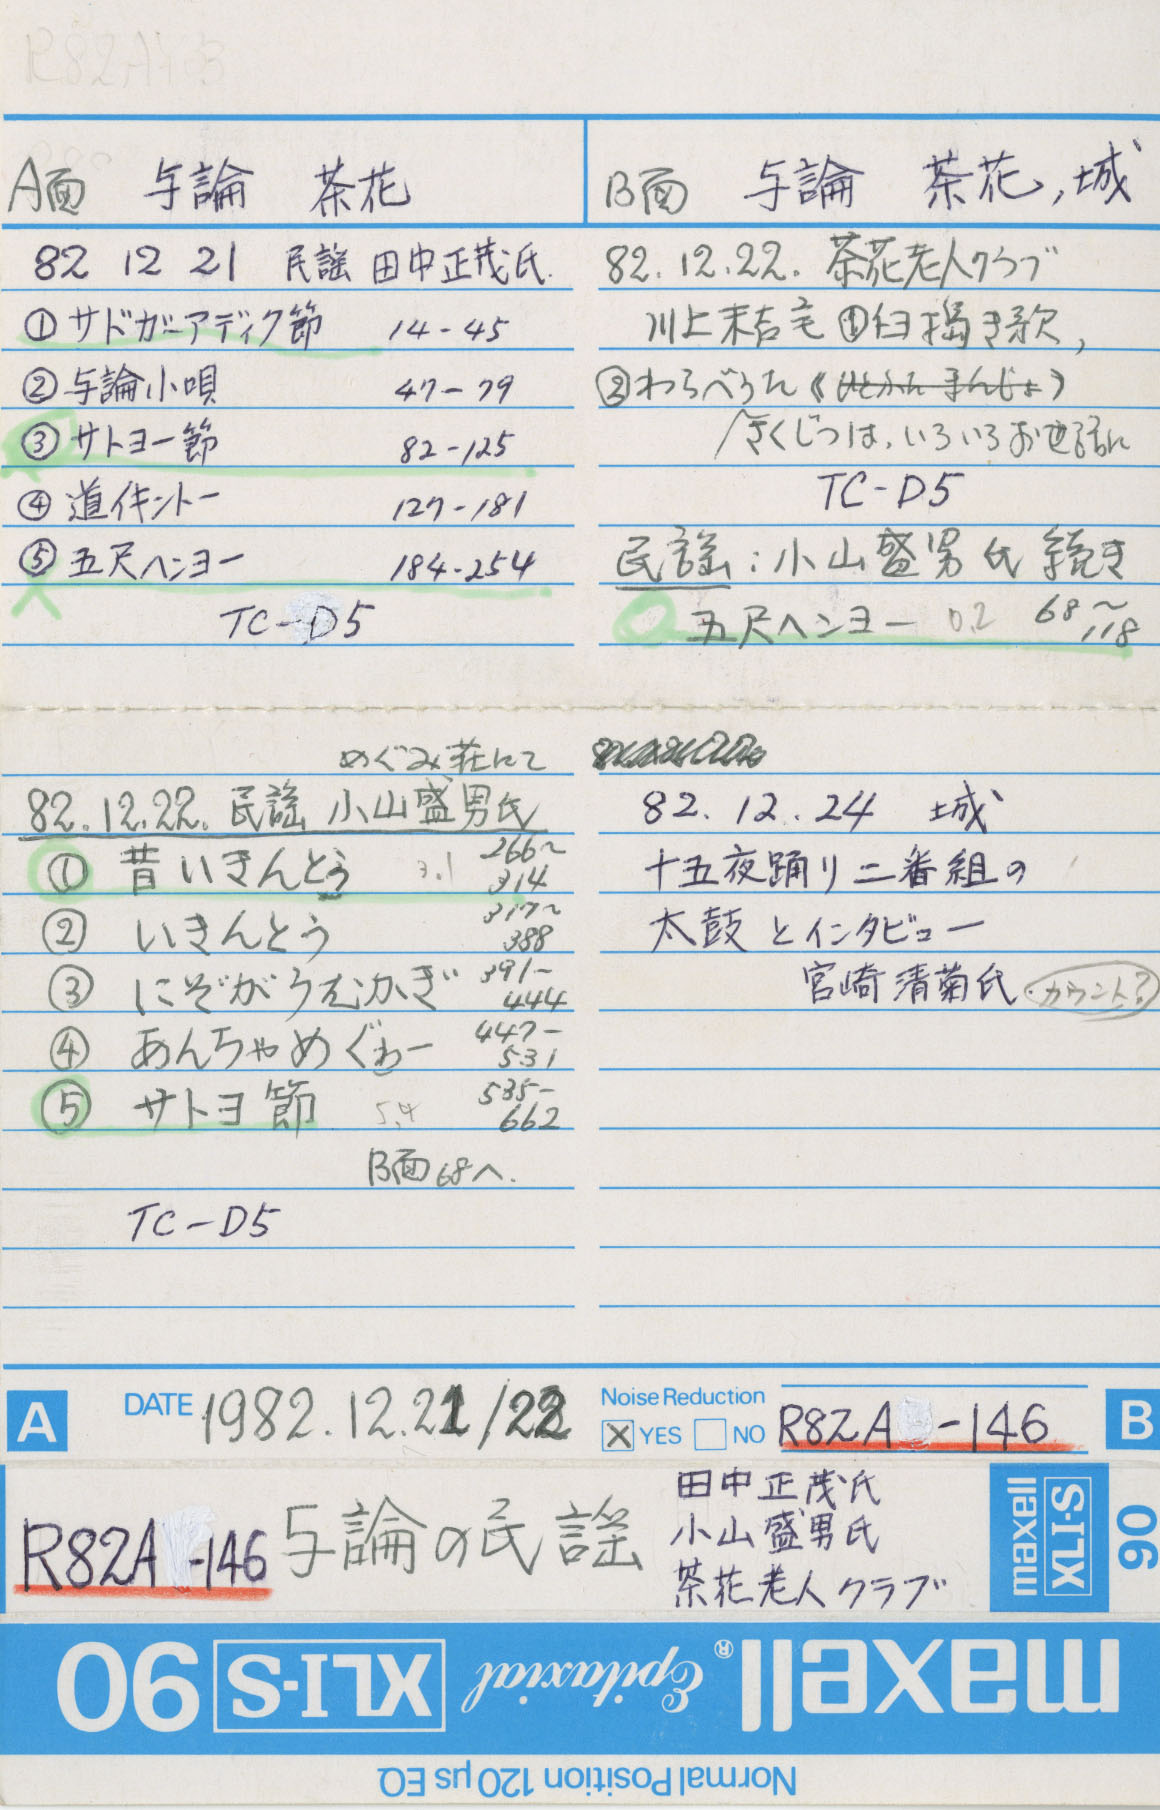 R82A
A面 与論 茶花
82 12 21 民謡 田中正茂氏.
① サドガーアディク節 14-45
② 与論小唄 47-79
③ サトヨー節 82-125
④ 道イキントー 127-181
⑤ 五尺ヘンヨー 184-254
TC-D5
めぐみ荘にて
82.12.22. 民謡 小山盛男氏
① 昔いきんとう 3.1 266~314
② いきんとう 317~388
③ にぞがうえむかぎ 391-444
④ あんちゃめぐゎー 447-531
⑤ サトヨ節 5.4 535-662
B面68へ.
TC-D5
B面 与論 茶花, 城
82.12.22. 茶花老人クラブ
川上末吉宅 ①臼搗き歌,
②わらべうた (いとかた まんじょ)
さくじつは, いろいろお世話に
TC-D5
民謡: 小山盛男氏 続き
五尺ヘンヨー 0.2 68~118
82.12.24 城
十五夜踊り二番組の
太鼓とインタビュー
宮崎清菊氏. カウント?
A DATE 1982.12.21/22 Noise Reduction YES NO R82A -146 B
R82A -146 与論の民謡
田中正茂氏
小山盛男氏
茶花老人クラブ
maxell XLI-S 90
maxell® Epitaxial XLI-S 90
Normal Position 120 μs EQ